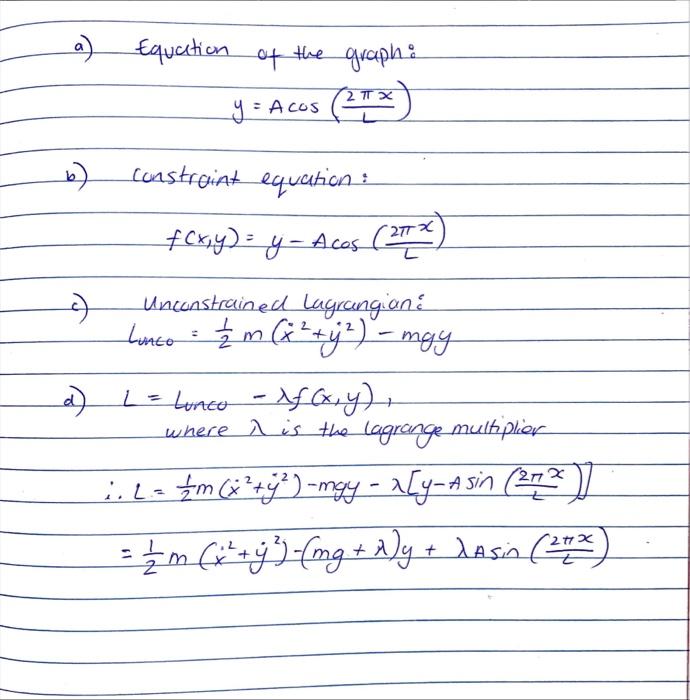 a) Equation of the graph:
y = A cos (2πx/L)
b) constraint equation:
f(x,y) = y - A cos (2πx/L)
c) Unconstrained Lagrangian:
Lunco = 1/2 m (ẋ² + ẏ²) - mgy
d) L = Lunco - λf(x,y),
where λ is the lagrange multiplier
∴ L = 1/2 m (ẋ² + ẏ²) - mgy - λ[y - A sin (2πx/L)]
= 1/2 m (ẋ² + ẏ²) - (mg + λ)y + λA sin (2πx/L)